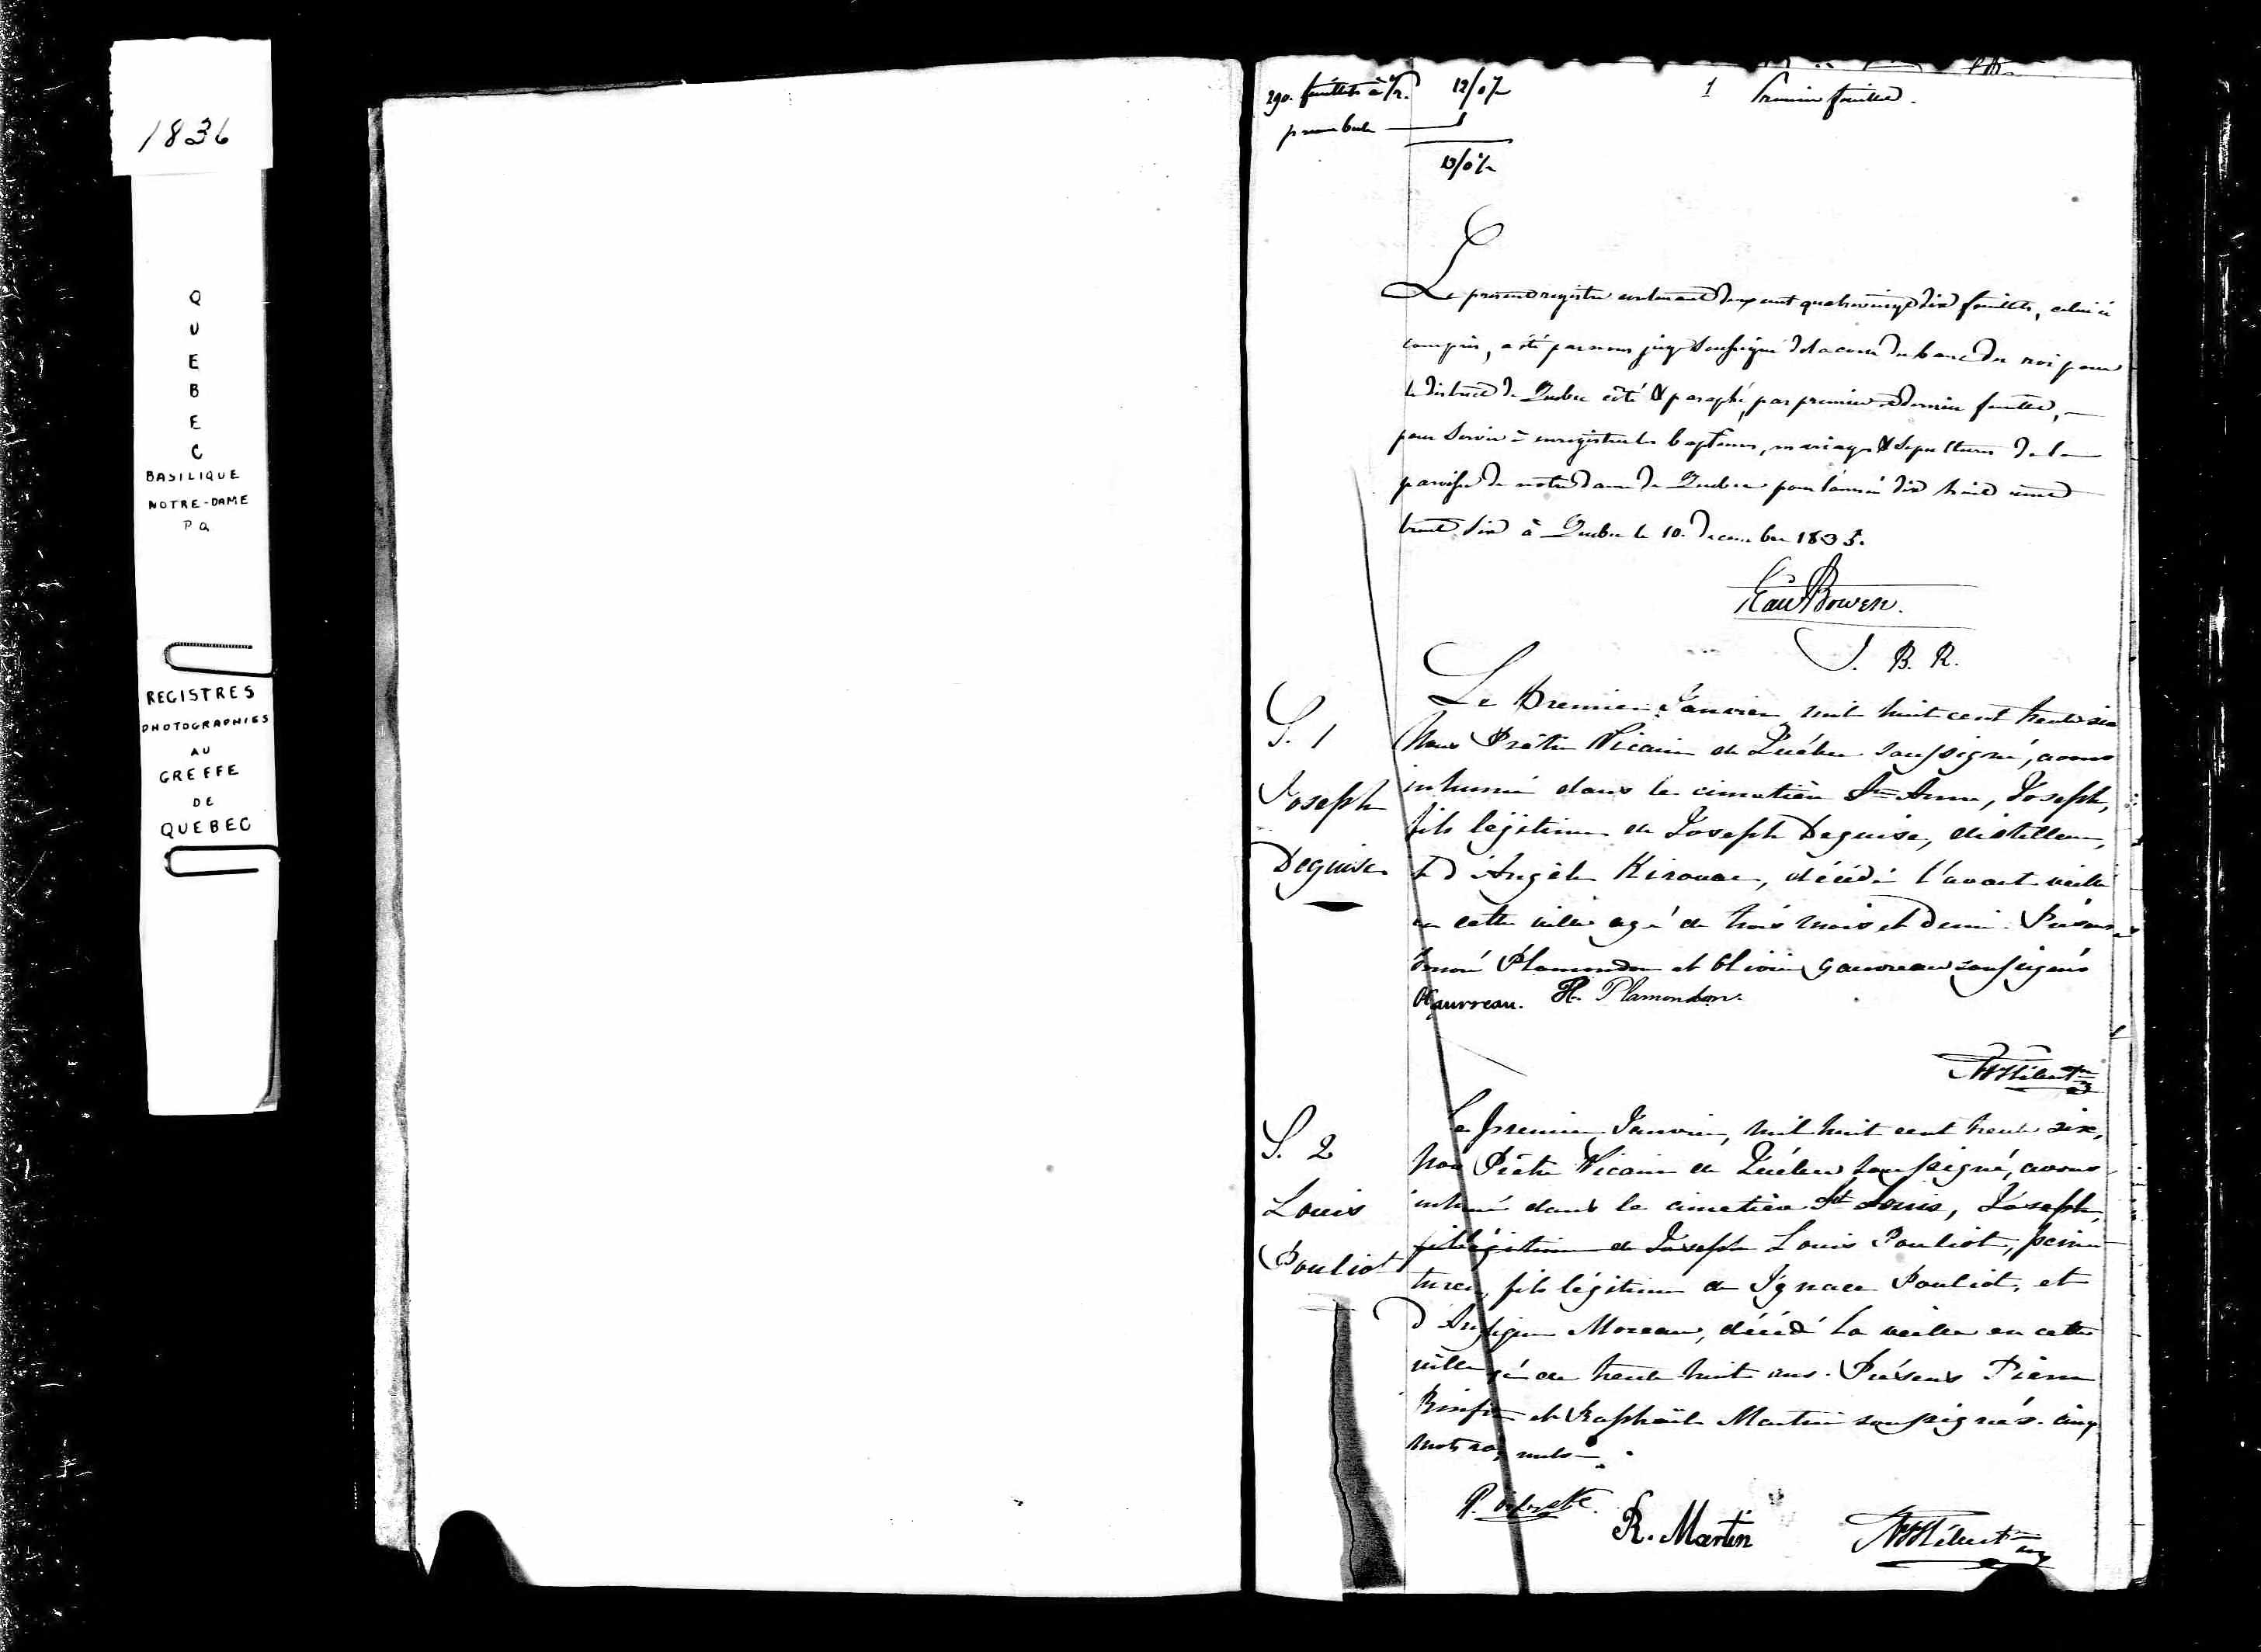 1836
Q
U
E
B
E
C
BASILIQUE
NOTRE-DAME
P Q
REGISTRES
PHOTOGRAPHIES
AU
GREFFE
DE
QUEBEC
290. feuillets à
12/0
1 Premier feuillet.
preambule
13/0
Le present registre contenant deux cent quatrevingt dix feuillets, celui ci
compris, a été par nous juge soussigné de la cour du banc du roi pour
le district de Quebec coté & paraphé, par premier et dernier feuillet,
pour servir à enregistrer les baptemes, mariages & sepultures de la
paroisse de notre dame de Quebec pour l'année dix huit cent
trente six à Quebec le 10. december 1835.
Edw Bowen.
J. B. R.
S. 1
Joseph
Deguise
Le Premier Janvier mil huit cent trente six
Nous Prêtre Vicaire de Québec soussigné, avons
inhumé dans le cimetière Ste Anne, Joseph,
fils légitime de Joseph Deguise, distillateur,
et d'Angèle Kirouac, décédé l'avant veille
en cette ville agé de trois mois et demi. Présens
Honoré Plamondon et Olivier Gauvreau soussignés
OGauvreau. H. Plamondon.
S. 2
Louis
Pouliot
Le premier Janvier, mil huit cent trente six,
Nous Prêtre Vicaire de Québec soussigné, avons
inhumé dans le cimetière St Louis, Joseph,
fils légitime de Joseph Louis Pouliot, pein-
turer, fils légitime de Ignace Pouliot, et
d' Moreau, décédé la veille en cette
ville agé de trente huit ans. Présens Pierre
et Raphaël Martin soussignés. cinq
mots rayés nuls
P.
R. Martin